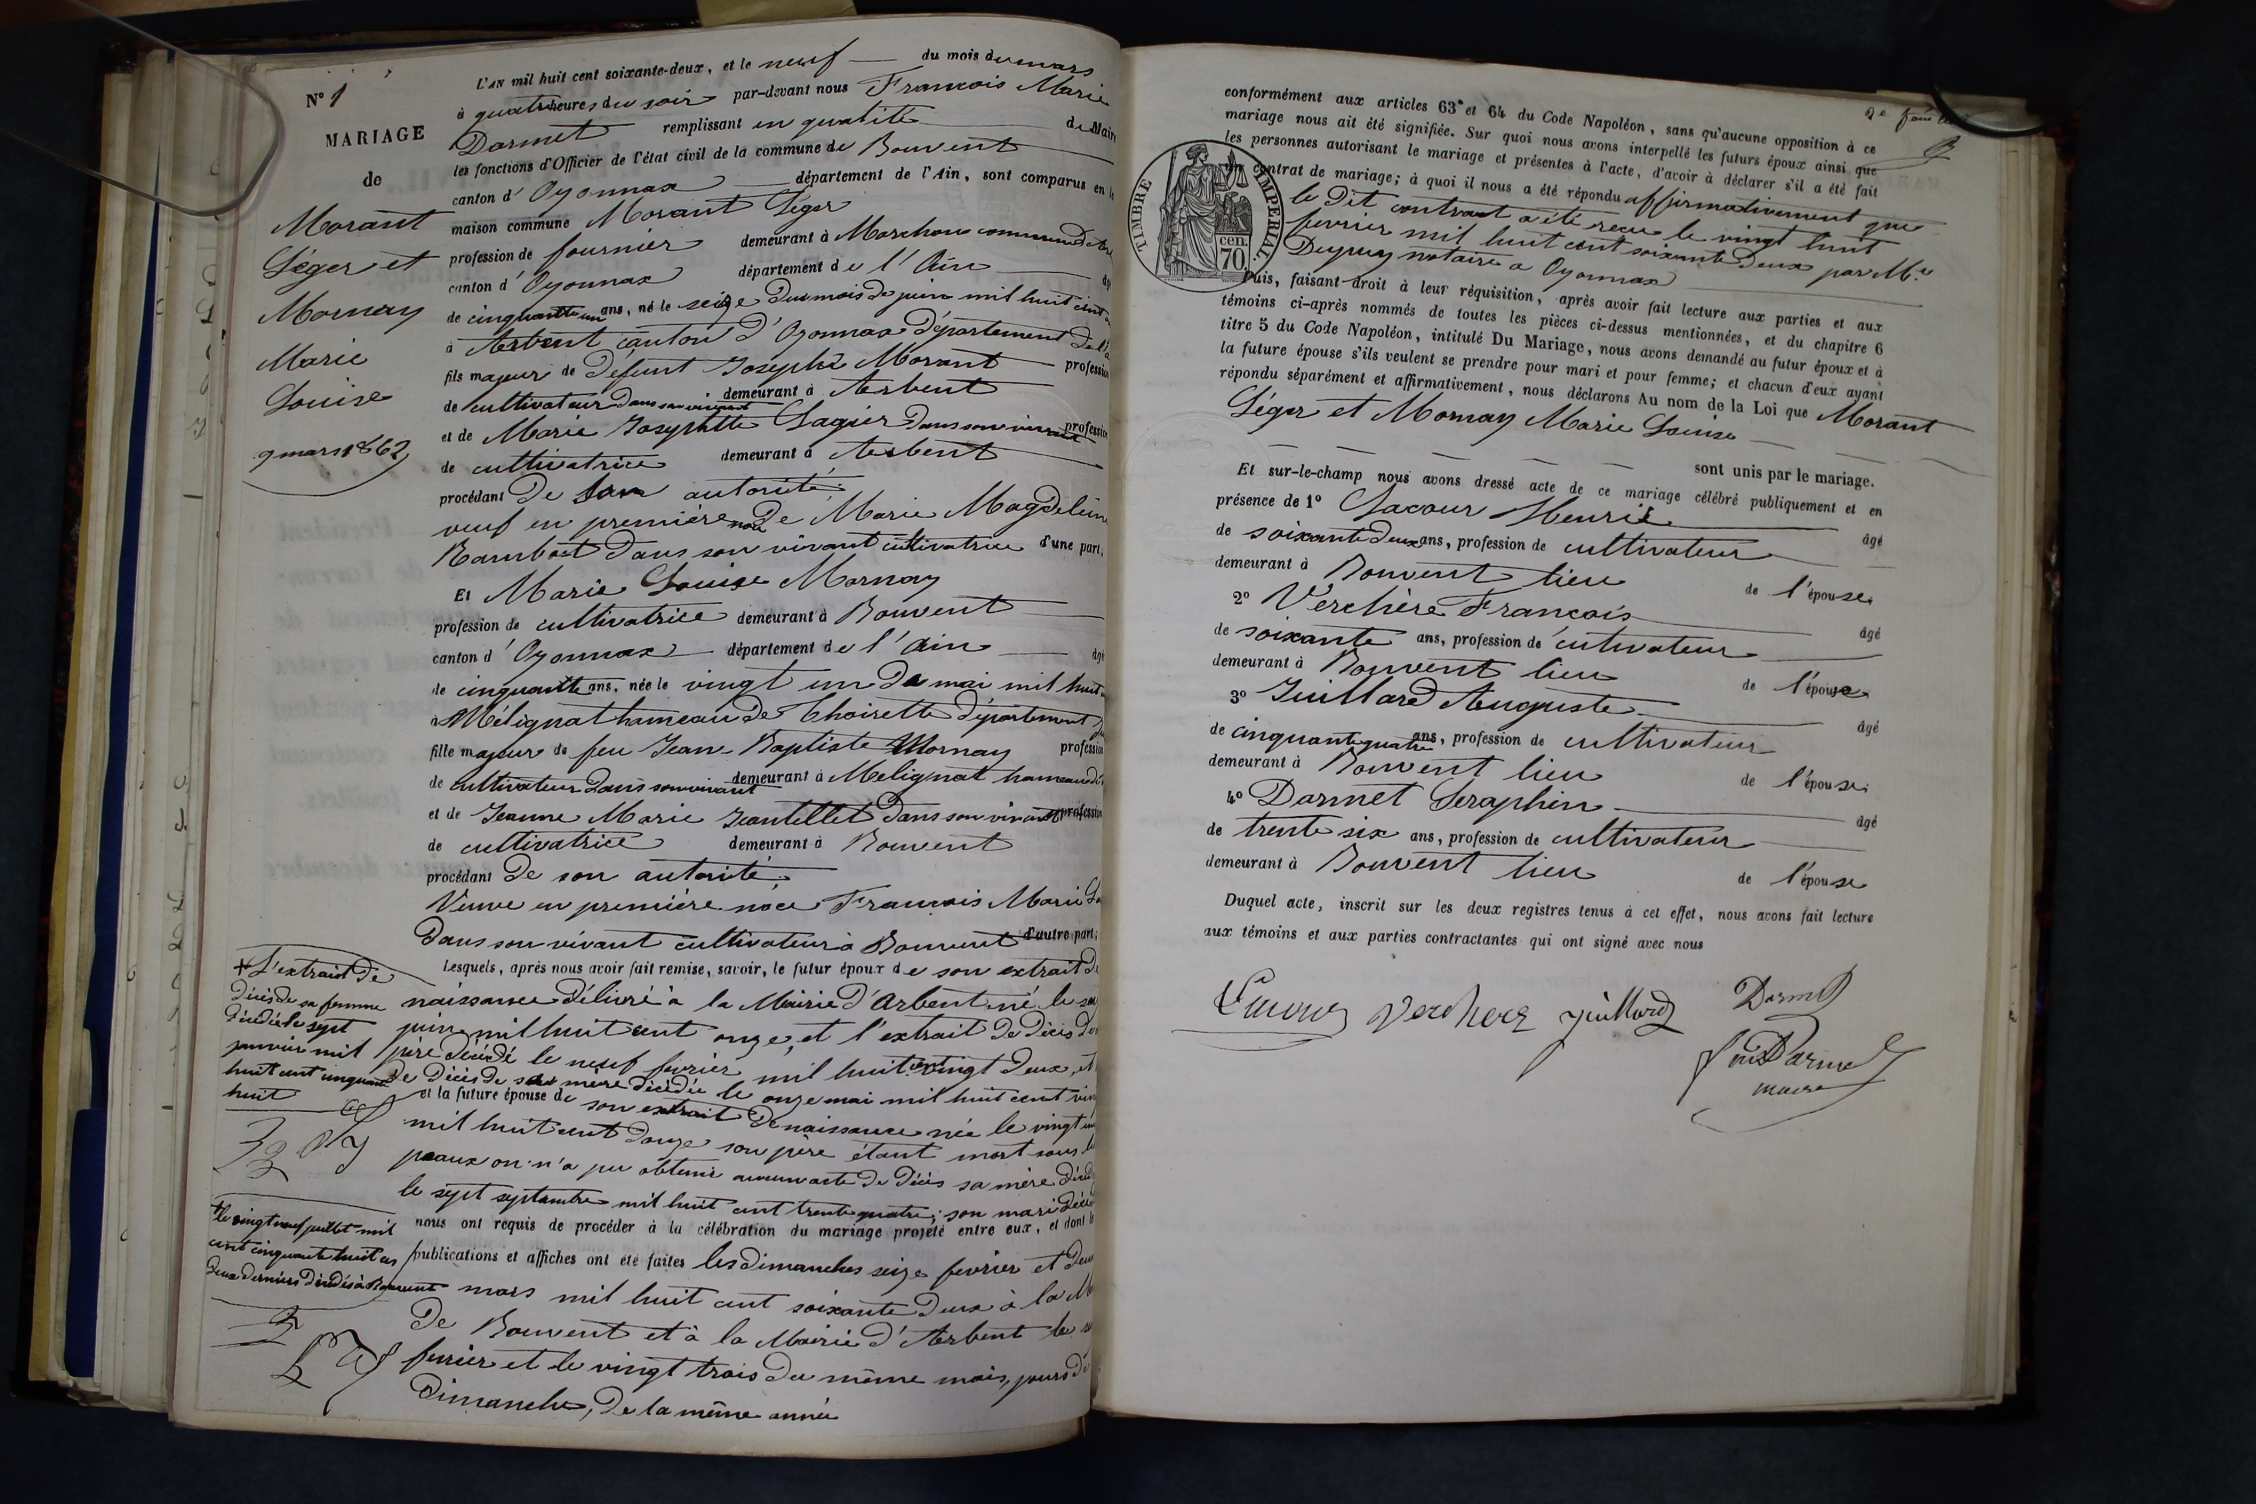 N° 1
MARIAGE
de
Morant
Léger et
Mornay
Marie
Louise
9 mars 1862
L'AN mil huit cent soixante-deux, et le neuf du mois de mars
à quatre heures du soir par-devant nous François Marie
Darmet remplissant en qualité de Maire
les fonctions d'Officier de l'état civil de la commune de Bouvent
canton d'Oyonnax département de l'Ain, sont comparus en la
maison commune Morant Léger
profession de fournier demeurant à Marchon commune d'Ar
canton d'Oyonnax département de l'Ain
de cinquante un ans, né le seize du mois de juin mil huit cent
à Arbent canton d'Oyonnax département de l'
fils majeur de défunt Joseph Morant profession
de cultivateur dans son vivant demeurant à Arbent
et de Marie Josephte Lagier dans son vivant profession
de cultivatrice demeurant à Arbent
procédant de son autorité
veuf en première noce de Marie Magdeleine
Rambost dans son vivant cultivatrice d'une part,
Et Marie Louise Mornay
profession de cultivatrice demeurant à Bouvent
canton d'Oyonnax département de l'Ain âgé
de cinquante ans, née le vingt un de mai mil huit
à Mélignat hameau de Thoirette département
fille majeure de feu Jean Baptiste Mornay profession
de cultivateur dans son vivant demeurant à Melignat hameau de
et de Jeanne Marie Jeantellet dans son vivant profession
de cultivatrice demeurant à Bouvent
procédant de son autorité
Veuve en première noce François Marie
dans son vivant cultivateur à Bouvent d'autre part;
Lesquels, après nous avoir fait remise, savoir, le futur époux de son extrait de
naissance délivré à la Mairie d'Arbent né le
juin mil huit cent onze, et l'extrait de décès de
père décédé le neuf février mil huit cent vingt deux, et
de décès de sa mère décédée le onze mai mil huit cent
et la future épouse de son extrait de naissance née le vingt un
mil huit cent douze son père étant mort sous les
peaux on n'a pu obtenir aucun acte de décès sa mère
le sept septembre mil huit cent trente quatre; son mari
nous ont requis de procéder à la célébration du mariage projeté entre eux, et dont les
publications et affiches ont été faites les dimanches seize fevrier et deux
mars mil huit cent soixante deux à la
de Bouvent et à la Mairie d'Arbent le
fevrier et le vingt trois du même mois, jours de
dimanche, de la même année
+ L'extrait de
décès de sa femme
décédée le sept
janvier mil
huit cent cinquante
huit
+ le vingt neuf juillet mil
cent cinquante huit ces
deux derniers décédés à Bouvent
TIMBRE IMPERIAL.
70 cen.
conformément aux articles 63 et 64 du Code Napoléon, sans qu'aucune opposition à ce
mariage nous ait été signifiée. Sur quoi nous avons interpellé les futurs époux ainsi que
les personnes autorisant le mariage et présentes à l'acte, d'avoir à déclarer s'il a été fait
contrat de mariage; à quoi il nous a été répondu affirmativement que
le dit contrat a été reçu le vingt huit
fevrier mil huit cent soixante deux par Me
Dupuy notaire a Oyonnax
Puis, faisant droit à leur réquisition, après avoir fait lecture aux parties et aux
témoins ci-après nommés de toutes les pièces ci-dessus mentionnées, et du chapitre 6
titre 5 du Code Napoléon, intitulé Du Mariage, nous avons demandé au futur époux et à
la future épouse s'ils veulent se prendre pour mari et pour femme; et chacun d'eux ayant
répondu séparément et affirmativement, nous déclarons Au nom de la Loi que Morant
Léger et Mornay Marie Louise
sont unis par le mariage.
Et sur-le-champ nous avons dressé acte de ce mariage célébré publiquement et en
présence de 1° Lacour Henri âgé
de soixante deux ans, profession de cultivateur
demeurant à Bouvent lieu de l'épouse.
2° Verchère François âgé
de soixante ans, profession de cultivateur
demeurant à Bouvent lieu de l'épouse
3° Juillard Auguste âgé
de cinquante quatre ans, profession de cultivateur
demeurant à Bouvent lieu de l'épouse
4° Darmet Seraphin âgé
de trente six ans, profession de cultivateur
demeurant à Bouvent lieu de l'épouse
Duquel acte, inscrit sur les deux registres tenus à cet effet, nous avons fait lecture
aux témoins et aux parties contractantes qui ont signé avec nous
Verchere Juillard
Darmet
maire